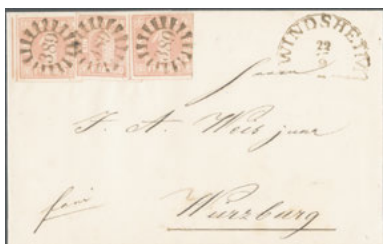 389 389 389
WINDSHEIM
22
9
Herrn
F. A. Weis junr
frei
Würzburg